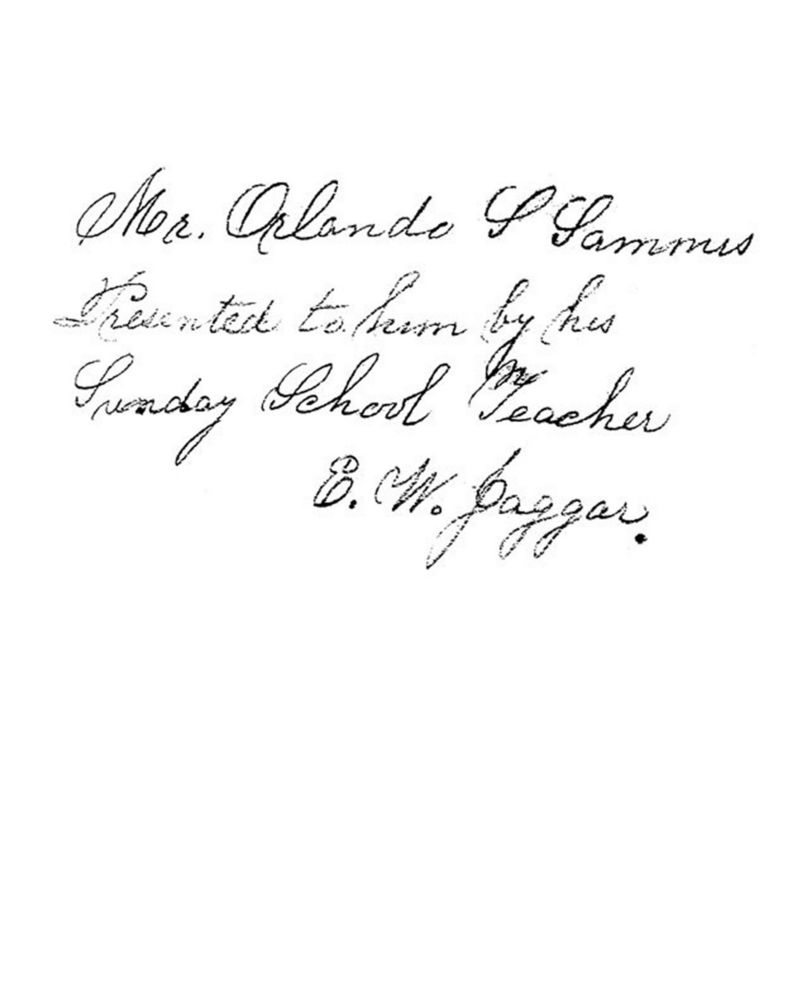 Mr. Orlando S Sammis
Presented to him by his
Sunday School Teacher
E. W. Jaggar.